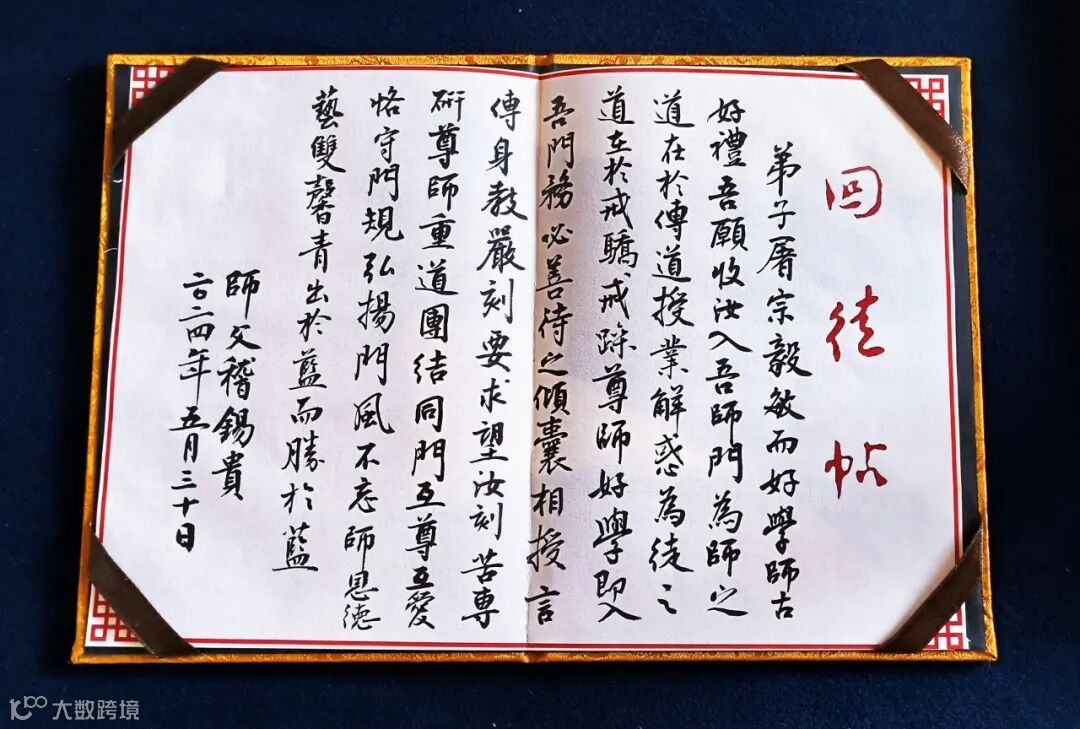 回徒帖
弟子屠宗毅敏而好學師古
好禮吾願收汝入吾師門為師之
道在於傳道授業解惑為徒之
道在於戒驕戒躁尊師好學即入
吾門務必善待之傾囊相授言
傳身教嚴刻要求望汝刻苦專
研尊師重道團結同門互尊互愛
恪守門規弘揚門風不忘師恩德
藝雙馨青出於藍而勝於藍
師父嵇錫貴
二〇二四年五月三十日
大数跨境